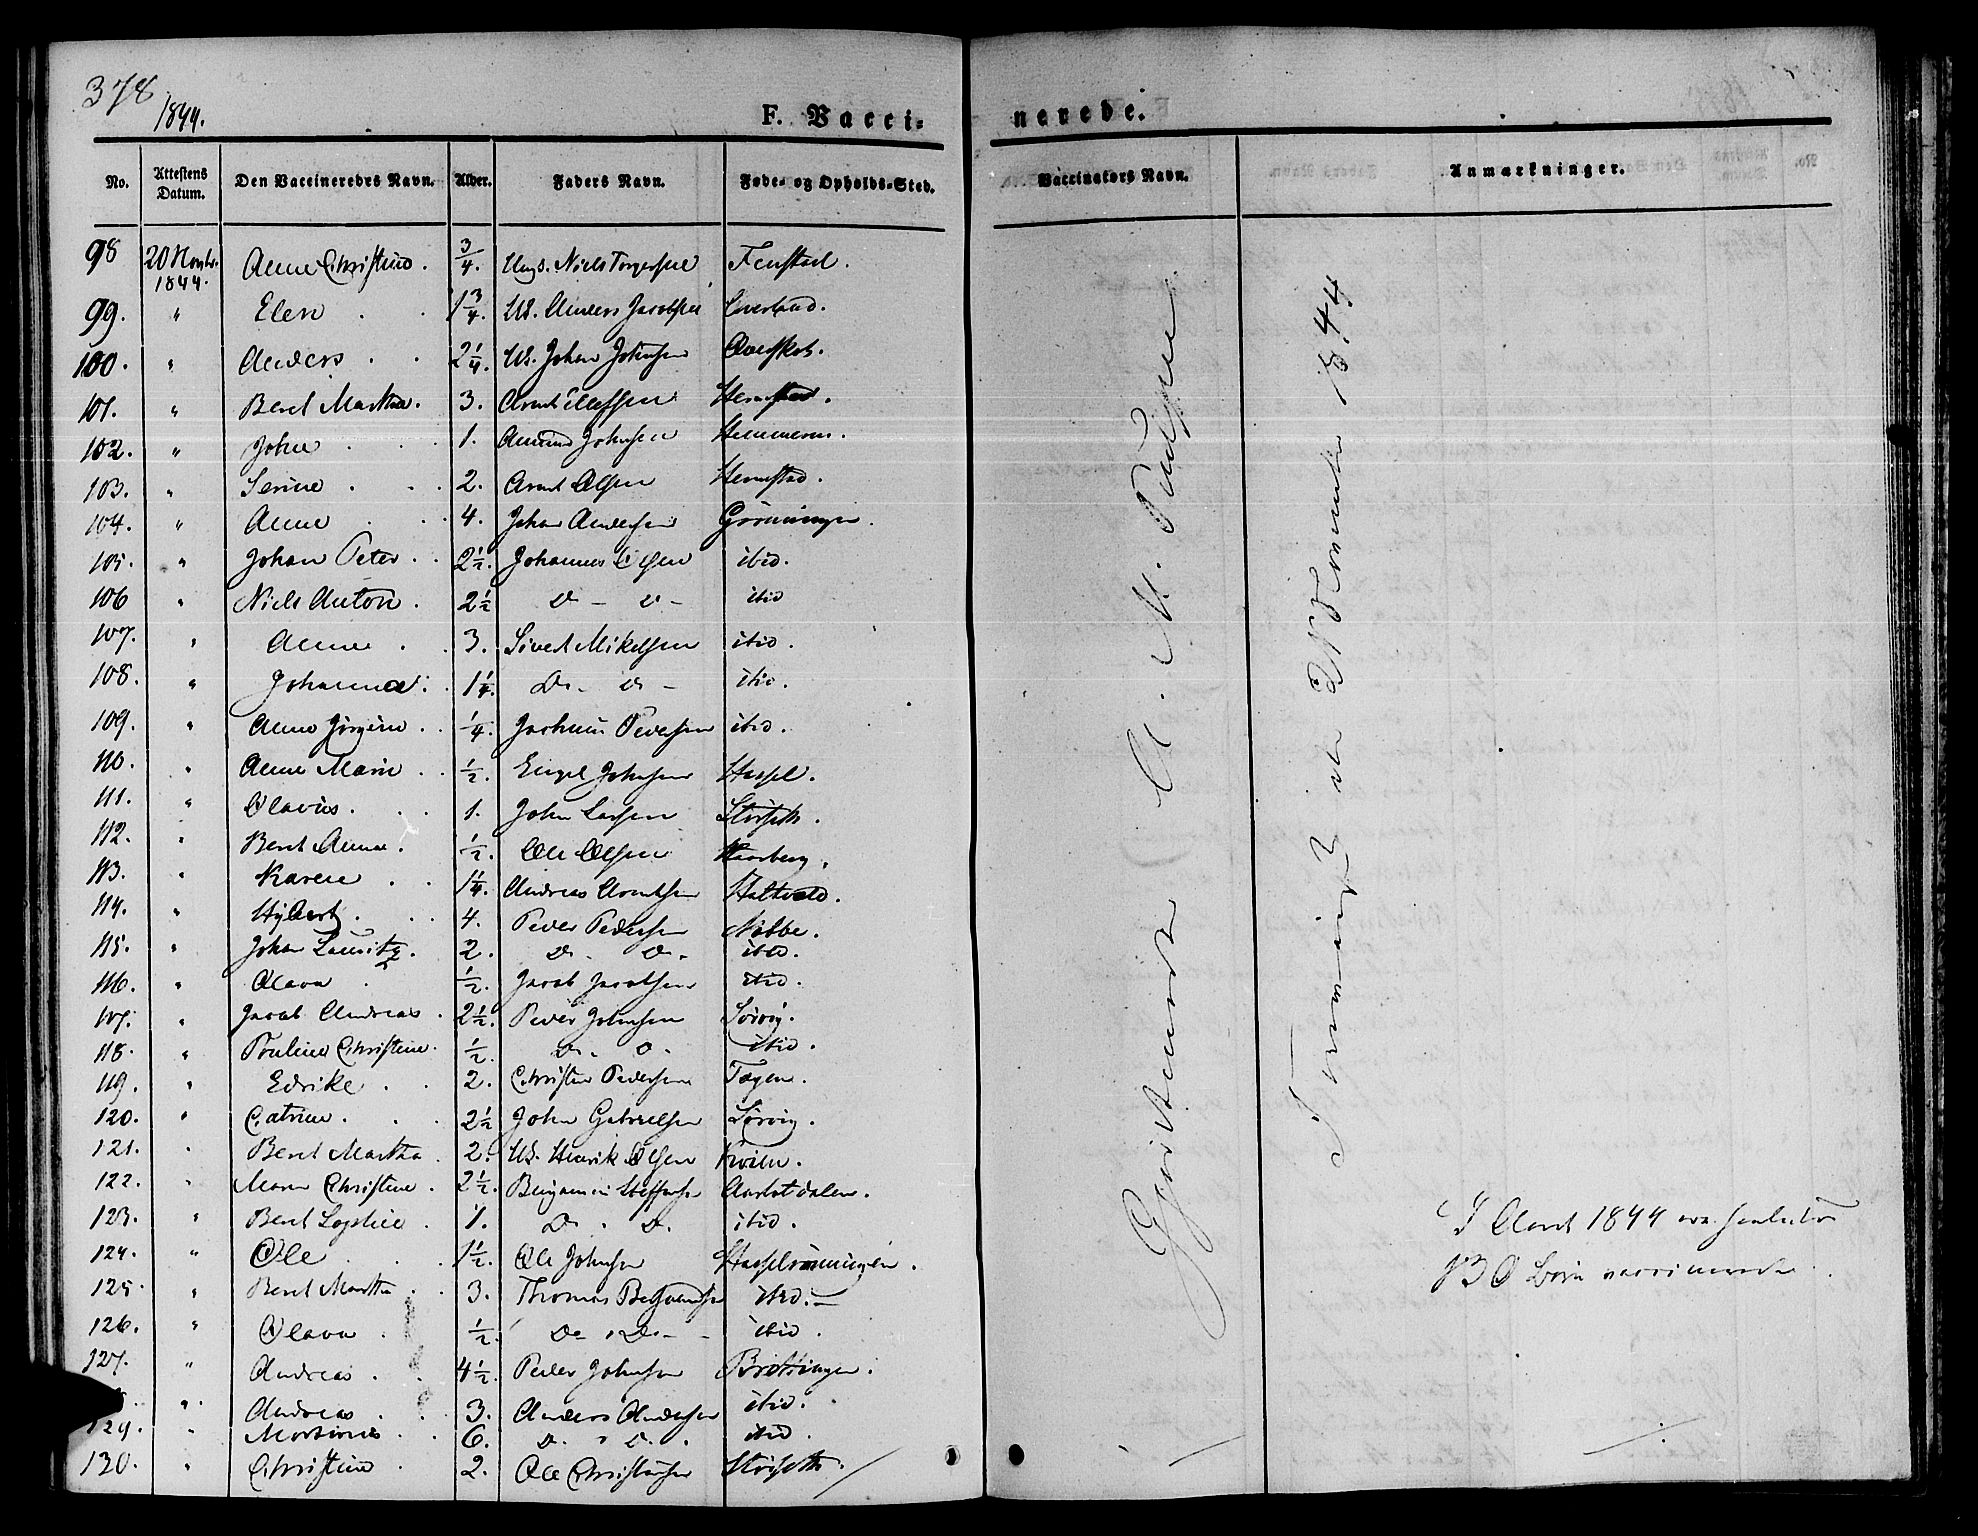 378
1844.
F. Vacci-
nerede.
No. Attestens Datum. Den Vaccineredes Navn. Alder. Faders Navn. Føde- og Opholds-Sted. Vaccinators Navn. Anmærkninger.
98 20 Novbr. 1844. Anne Christine. 3/4. Ungs. Niels Torgersen Fenstad.
99. " Elen 1 3/4. Us. Anders Jacobsen
100. " Anders 2 1/4. Us. Johan Johnsen
101. " Beret Martha. 3. Arnt Hermstad.
102. " John 1. Amund Johnsen
103. " Serine 2. Arnt Olsen Hermstad.
104. " Anne 4. Johan Andersen Grønningen.
105. " Johan Peter 2 1/2. Johannes Olsen ibid.
106 " Niels Anton. 2 1/2 D - D - ibid
107. " Anne 3. Sivert Mikelsen ibid.
108. " Johanna 1 1/4. D. - D - ibid.
109. " Anne Jørgine 1/4. Jochum Pedersen ibid.
110. " Anne Marie 1/2. Engel Johnsen Hassel.
111. " Olavus. 1. John Larsen Størseth.
112. " Beret Anna. 1/2. Ole Olsen
113. " Karen 1 1/4. Andreas Arntsen
114. " Hybert. 4. Peder Pedersen Nøbbe.
115. " Johan Lauritz. 2. D. D. ibid.
116. " Olava 1/2. Jacob Jacobsen ibid.
117. " Jacob Andreas. 2 1/2. Peder Johnsen Sørvig.
118. " Pauline Christine. 1/2. D. D. ibid.
119. " Edvike 2. Christen Pedersen
120. " Catrine. 2 1/2 John Gabrielsen Sørvig.
121. " Beret Martha 2. Us. Henrik Olsen
122. " Maren Christine. 2 1/2. Benjamin Steffensen
123. " Beret Sophie 1. D. D. ibid.
124. " Ole 1 1/2. Ole Johnsen
125. " Beret Martha 3. Thomas ibid. -
126. " Olava 1/2. D - D - ibid.
127. " Andreas 4 1/2. Peder Johnsen Brettingen.
" Andreas 3. Anders Andersen ibid.
129. " Martinus 6. D. " D. ibid.
130. " Christine 2. Ole Christensen Størseth.
1844
I Aaret 1844
130 Børn vaccinerede.